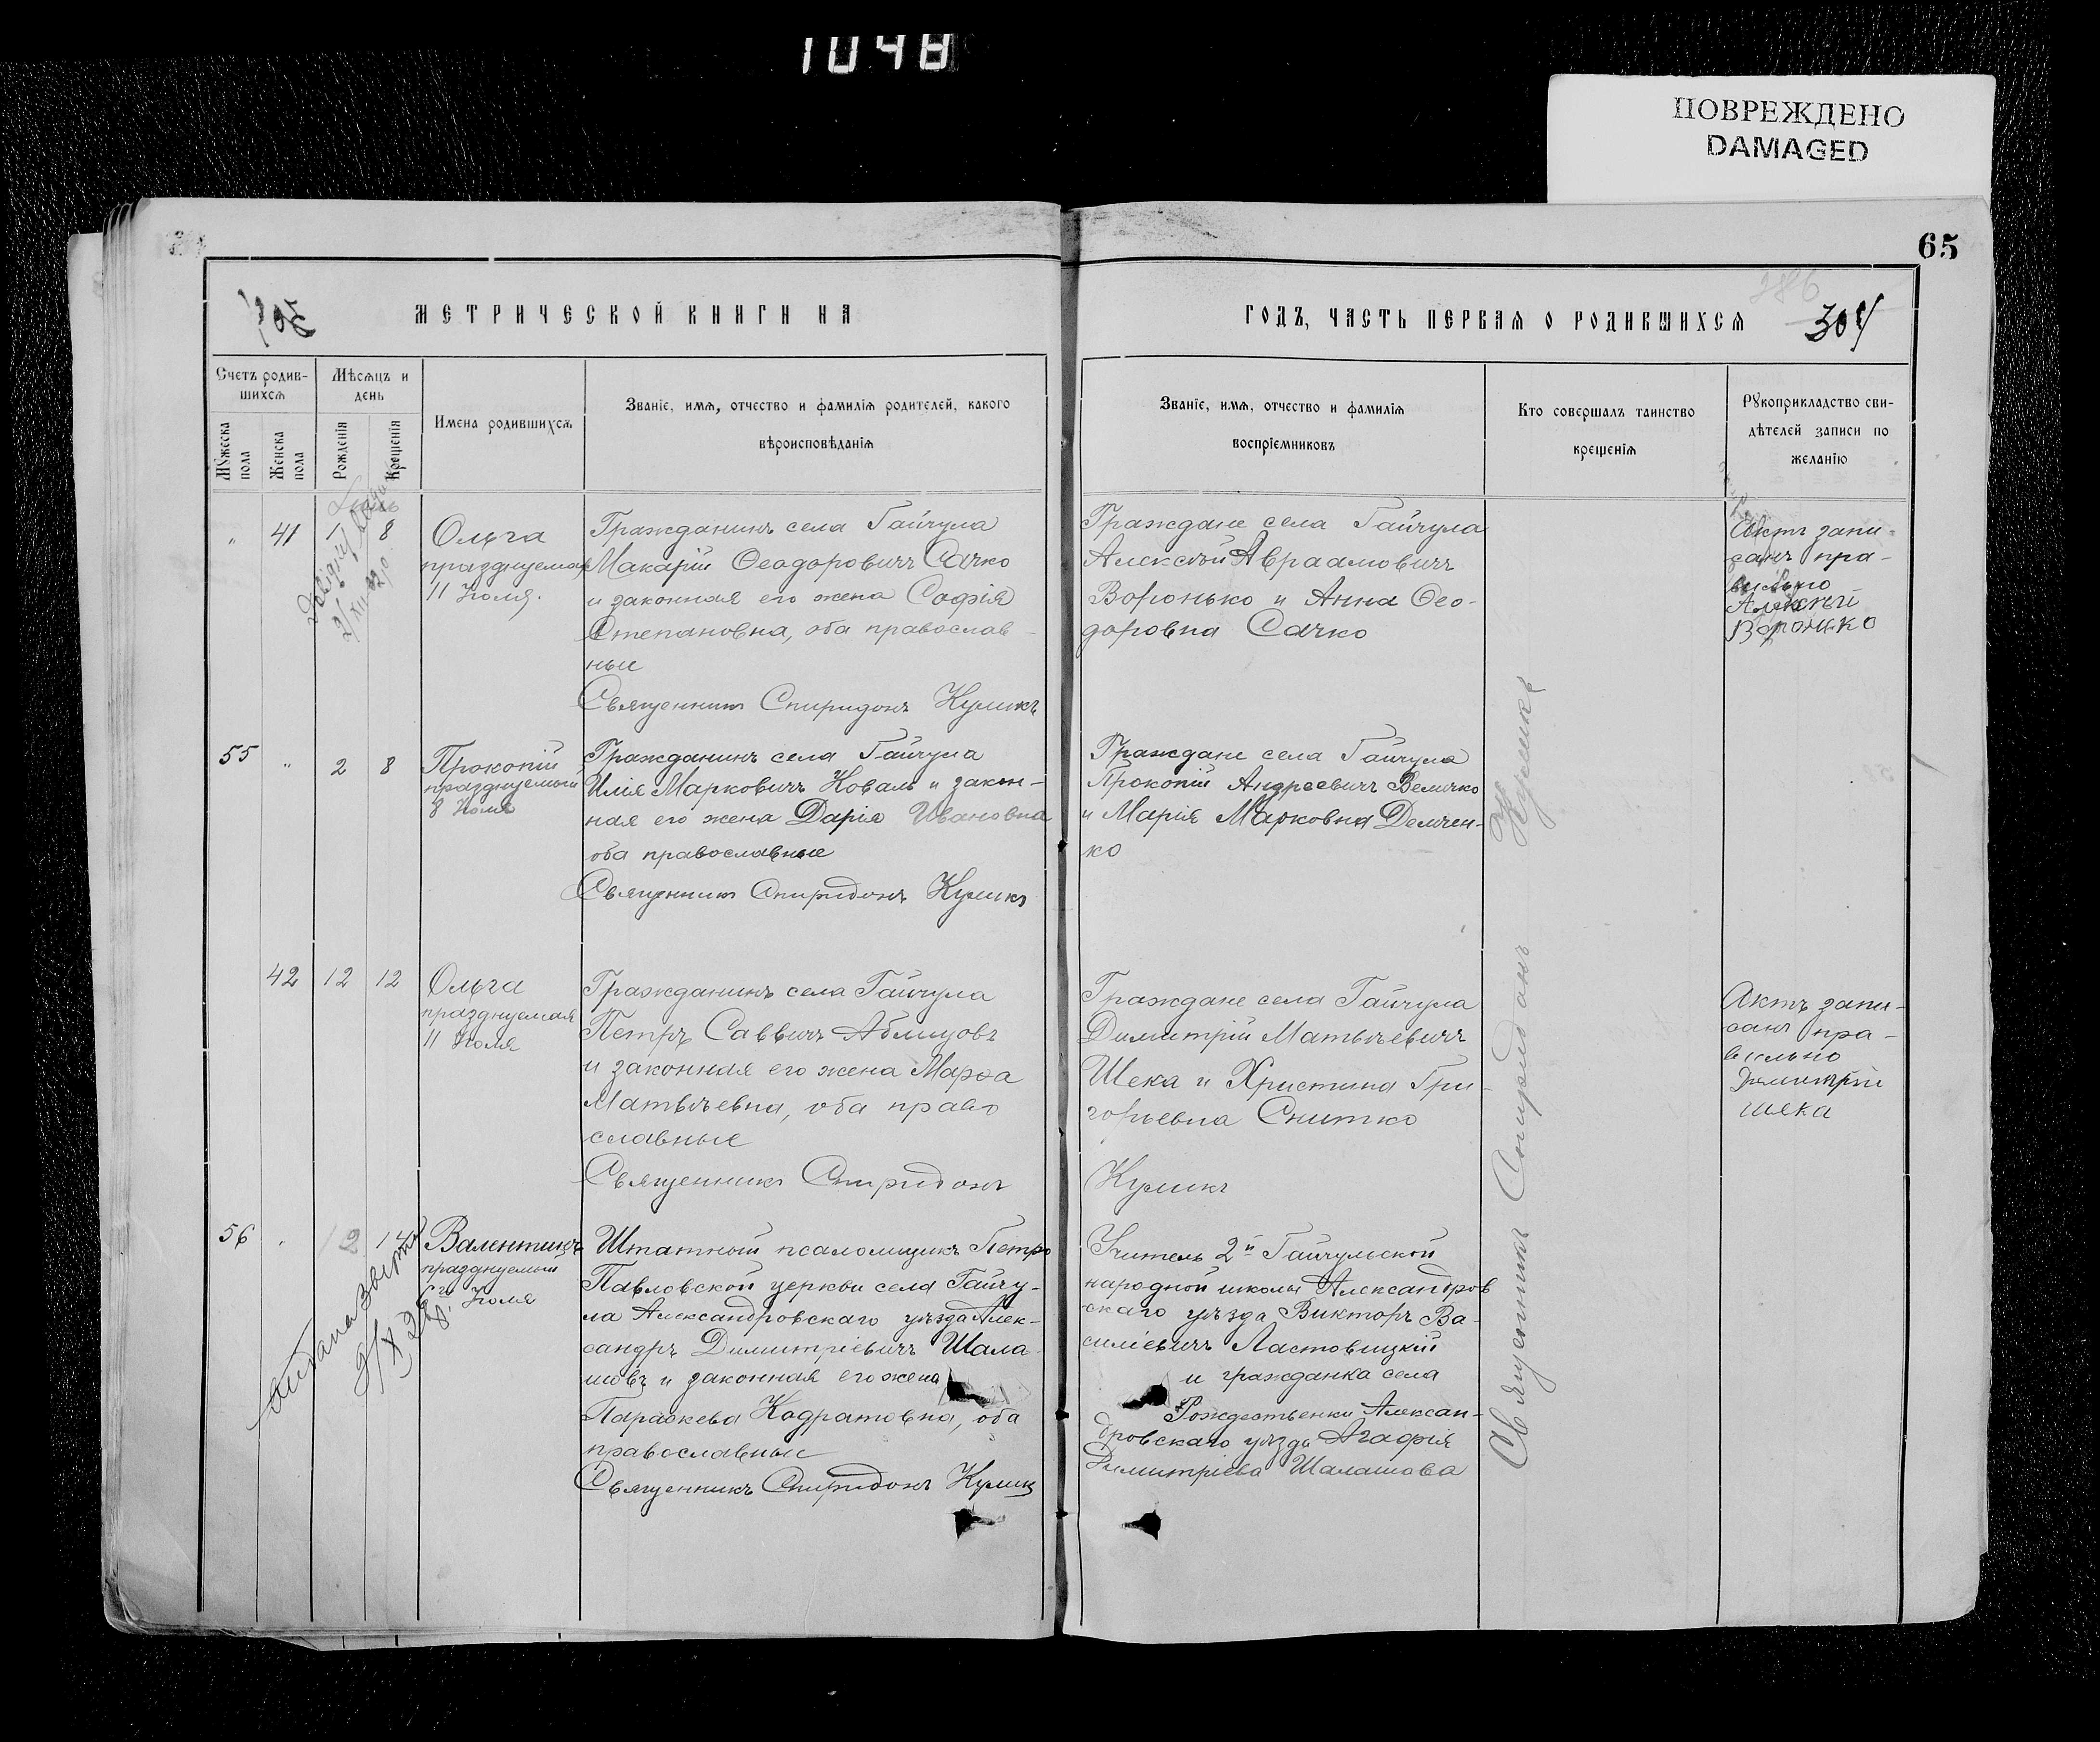 1048
ПОВРЕЖДЕНО
DAMAGED
65
МЕТРИЧЕСКОЙ КНИГИ НА
ГОДЪ, ЧАСТЬ ПЕРВАЯ О РОДИВШИХСЯ
304
Счетъ родив-
шихся
Мужеска пола
Женска пола
Мѣсяцъ и
день
Рожденія
Крещенія
Имена родившихся
Званіе, имя, отчество и фамилія родителей, какого
вѣроисповѣданія
Званіе, имя, отчество и фамилія
воспріемниковъ
Кто совершалъ таинство
крещенія
Рукоприкладство сви-
дѣтелей записи по
желанію
" 41 1 8
Ольга
празднуемая
11 Іюля.
Гражданинъ села Гайчула
Макарій Ѳеодоровичъ Сачко
и законная его жена Софія
Степановна, оба православ-
ные
Священникъ Спиридонъ Куликъ
Граждане села Гайчула
Алексѣй Авраамовичъ
Воронько и Анна Ѳео-
доровна Сачко
Актъ запи-
санъ пра-
вильно
Алексѣй
Воронько
55 " 2 8
Прокопій
празднуемый
8 Іюля
Гражданинъ села Гайчула
Илія Марковичъ Коваль и закон-
ная его жена Дарія Ивановна
оба православные
Священникъ Спиридонъ Куликъ
Граждане села Гайчула
Прокопій Андреевичъ Величко
и Марія Марковна Демчен-
ко
42 12 12
Ольга
празднуемая
11 Іюля
Гражданинъ села Гайчула
Петръ Саввичъ Аблицовъ
и законная его жена Марѳа
Матвѣевна, оба право
славные
Священникъ Спиридонъ
Граждане села Гайчула
Димитрій Матвѣевичъ
Шека и Христина Гри-
горьевна Снитко
Куликъ
Актъ запи-
санъ пра-
вильно
Димитрій
Шека
56 " 12 14
Валентинъ
празднуемый
Іюля
Штатный псаломщикъ Петро
Павловской церкви села Гайчу-
ла Александровскаго уѣзда Алек-
сандръ Димитріевичъ Шала-
шовъ и законная его жена
Параскева Кодратовна, оба
православные
Священникъ Спиридонъ Куликъ
Учитель 2й Гайчульской
народной школы Александров
скаго уѣзда Викторъ Ва-
силіевичъ Ластовицкій
и гражданка села
Рождественки Алексан-
дровскаго уѣзда Агафія
Димитріева Шалашова
Священникъ Спиридонъ Куликъ